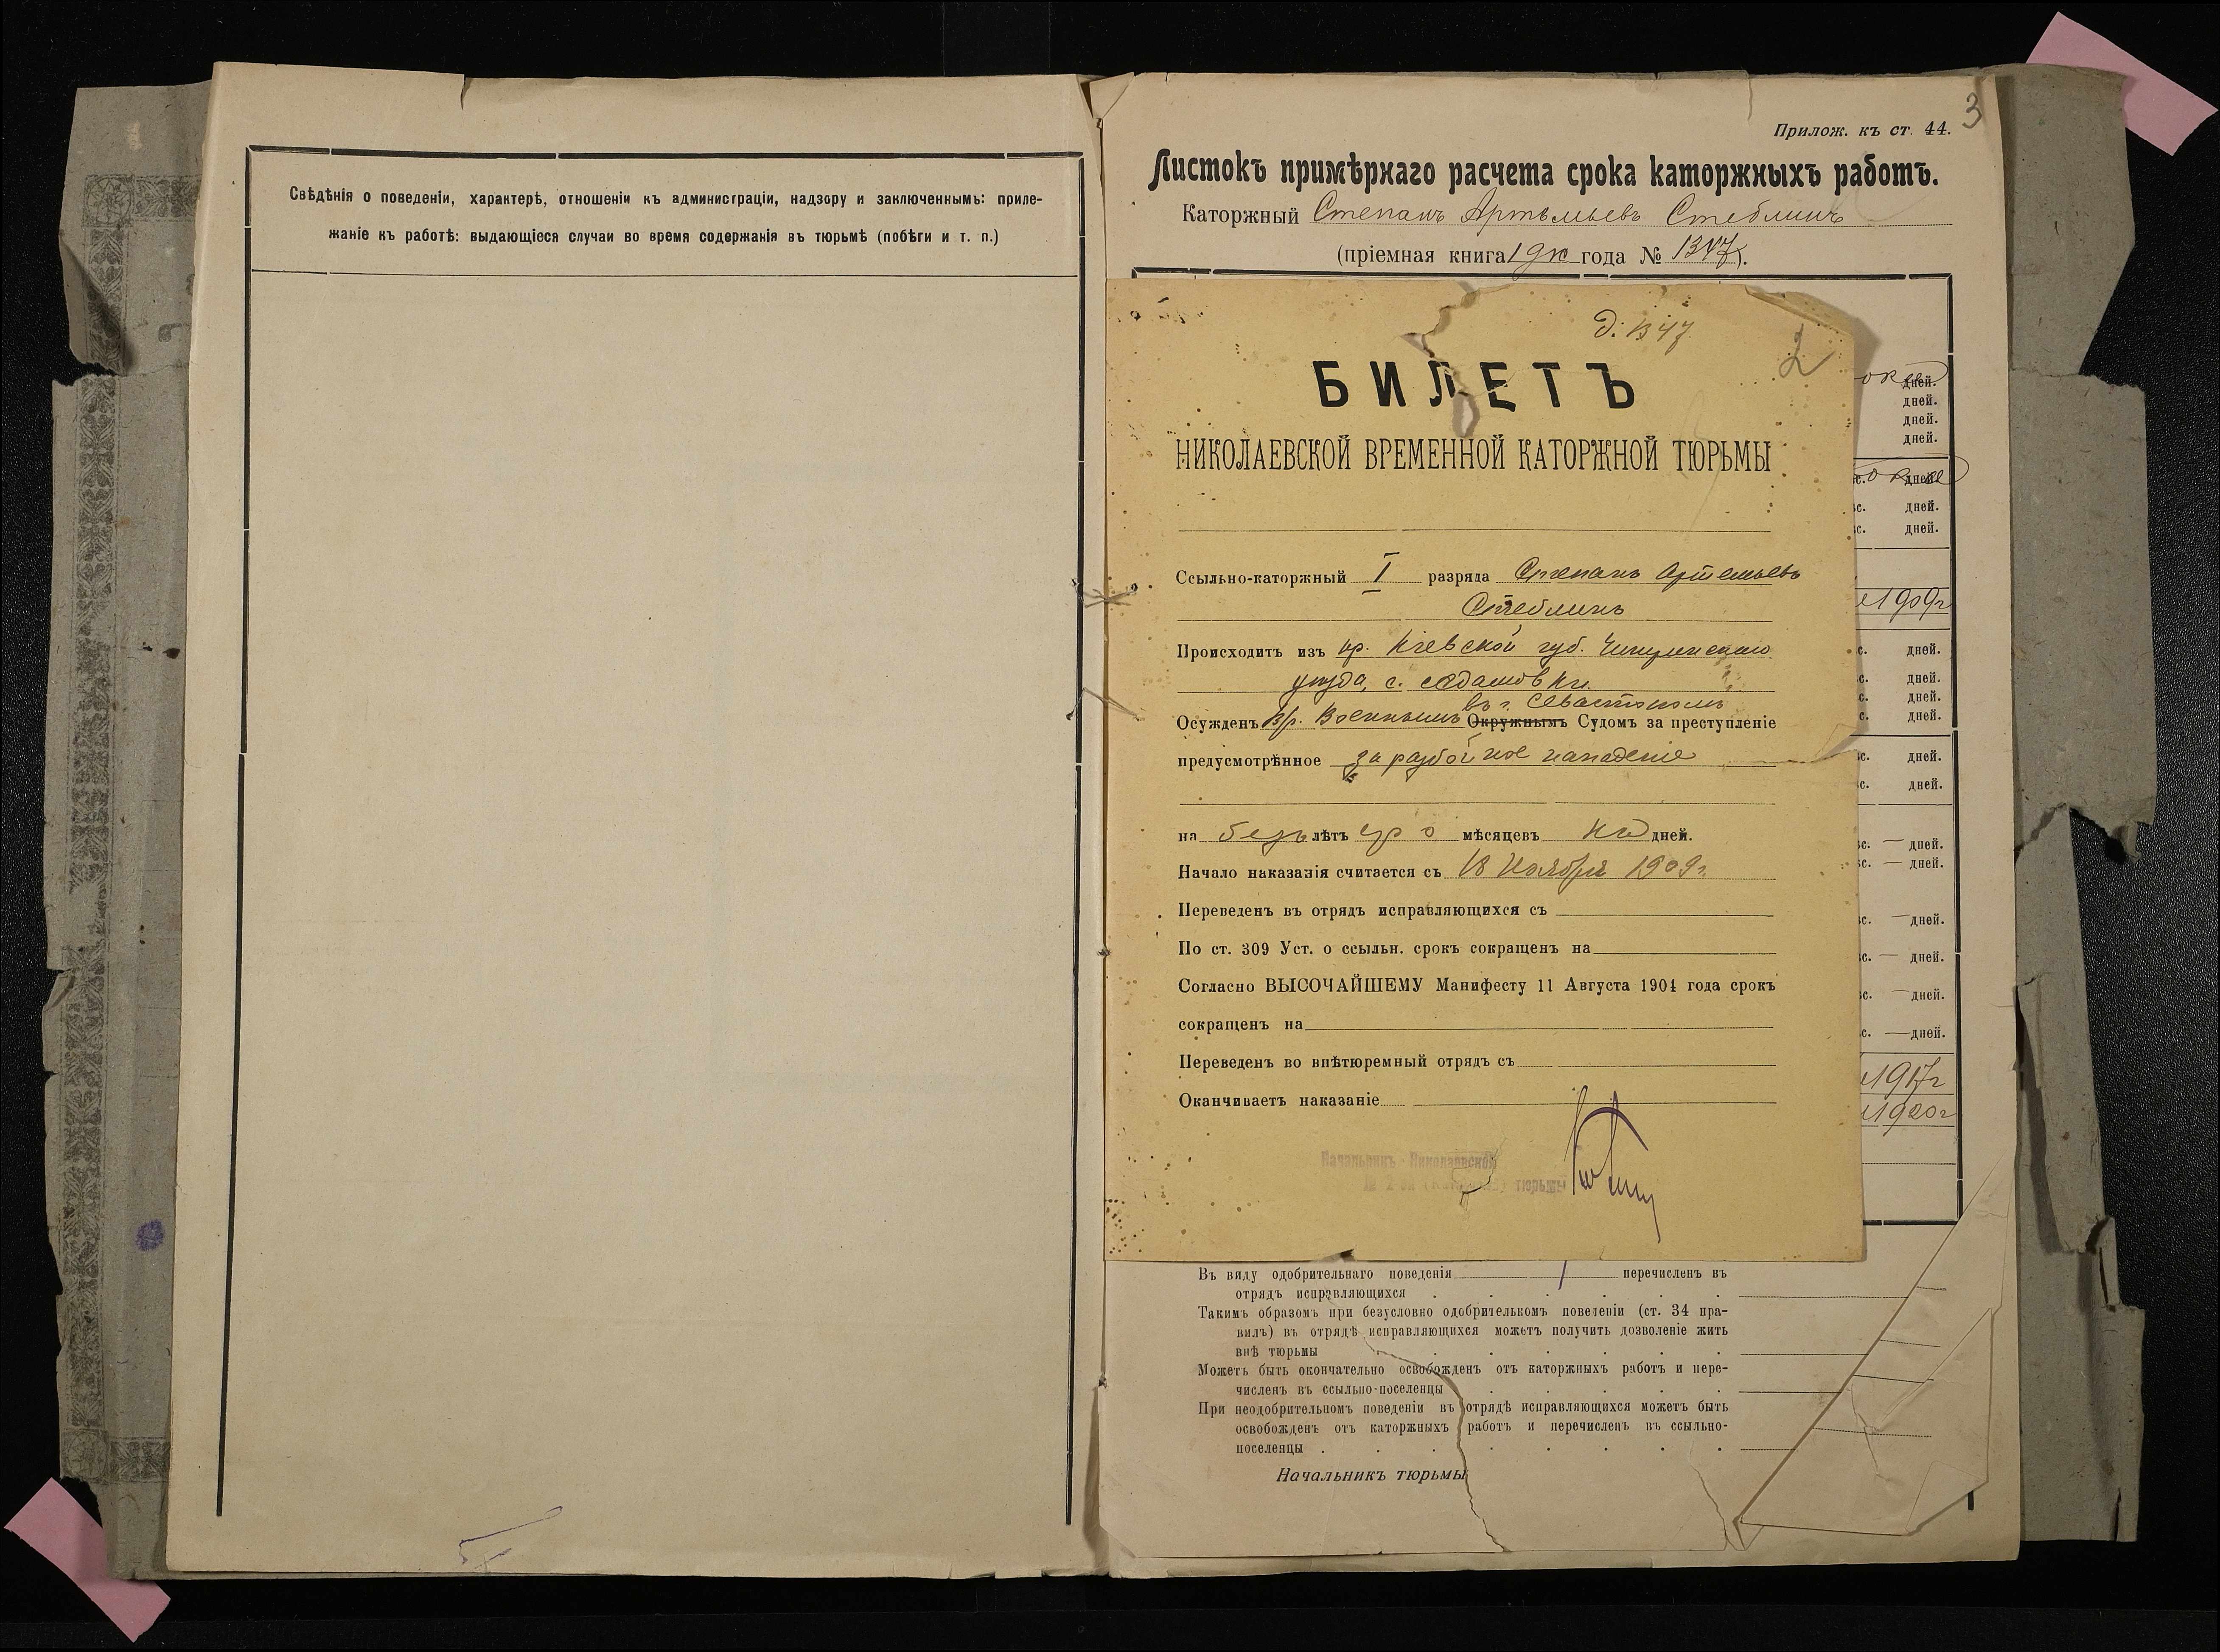 Свѣдѣнія о поведеніи, характерѣ, отношеніи къ администраціи, надзору и заключеннымъ: приле-
жаніе къ работѣ: выдающіеся случаи во время содержанія въ тюрьмѣ (побѣги и т. п.)
3
Прилож. къ ст. 44.
Листокъ примѣрнаго расчета срока каторжныхъ работъ.
Каторжный Степанъ Артемьевъ Стеблинъ
(пріемная книга года № 1347).
д. 1347
2
БИЛЕТЪ
НИКОЛАЕВСКОЙ ВРЕМЕННОЙ КАТОРЖНОЙ ТЮРЬМЫ
Ссыльно-каторжный I разряда Степанъ Артемьевъ
Стеблинъ
Происходитъ изъ кр. Кіевской губ. Чигиринскаго
уѣзда, с. Адамовки
въ г. Севастополѣ
Осужденъ Вр. Военнымъ Окружнымъ Судомъ за преступленіе
предусмотрѣнное за разбойное нападеніе
на безъ лѣтъ ср о мѣсяцевъ ка дней.
Начало наказанія считается съ 18 Ноября 1909 г.
Переведенъ въ отрядъ исправляющихся съ
По ст. 309 Уст. о ссыльн. срокъ сокращенъ на
Согласно ВЫСОЧАЙШЕМУ Манифесту 11 Августа 1904 года срокъ
сокращенъ на
Переведенъ во внѣтюремный отрядъ съ
Оканчиваетъ наказаніе
Начальникъ Николаевской
тюрьмы
дней.
дней.
дней.
дней.
с. дней.
с. дней.
с. дней.
1909г
с. дней.
с. дней.
с. дней.
с. дней.
с. дней.
с. дней.
с. — дней.
с. — дней.
с. — дней.
с. — дней.
с. — дней.
с. — дней.
1917г
1920г
Въ виду одобрительнаго поведенія перечисленъ въ
отрядъ исправляющихся
Такимъ образомъ при безусловно одобрительномъ поведеніи (ст. 34 пра-
вилъ) въ отрядѣ исправляющихся можетъ получить дозволеніе жить
внѣ тюрьмы
Можетъ быть окончательно освобожденъ отъ каторжныхъ работъ и пере-
численъ въ ссыльно-поселенцы
При неодобрительномъ поведеніи въ отрядѣ исправляющихся можетъ быть
освобожденъ отъ каторжныхъ работъ и перечисленъ въ ссыльно-
поселенцы
Начальникъ тюрьмы